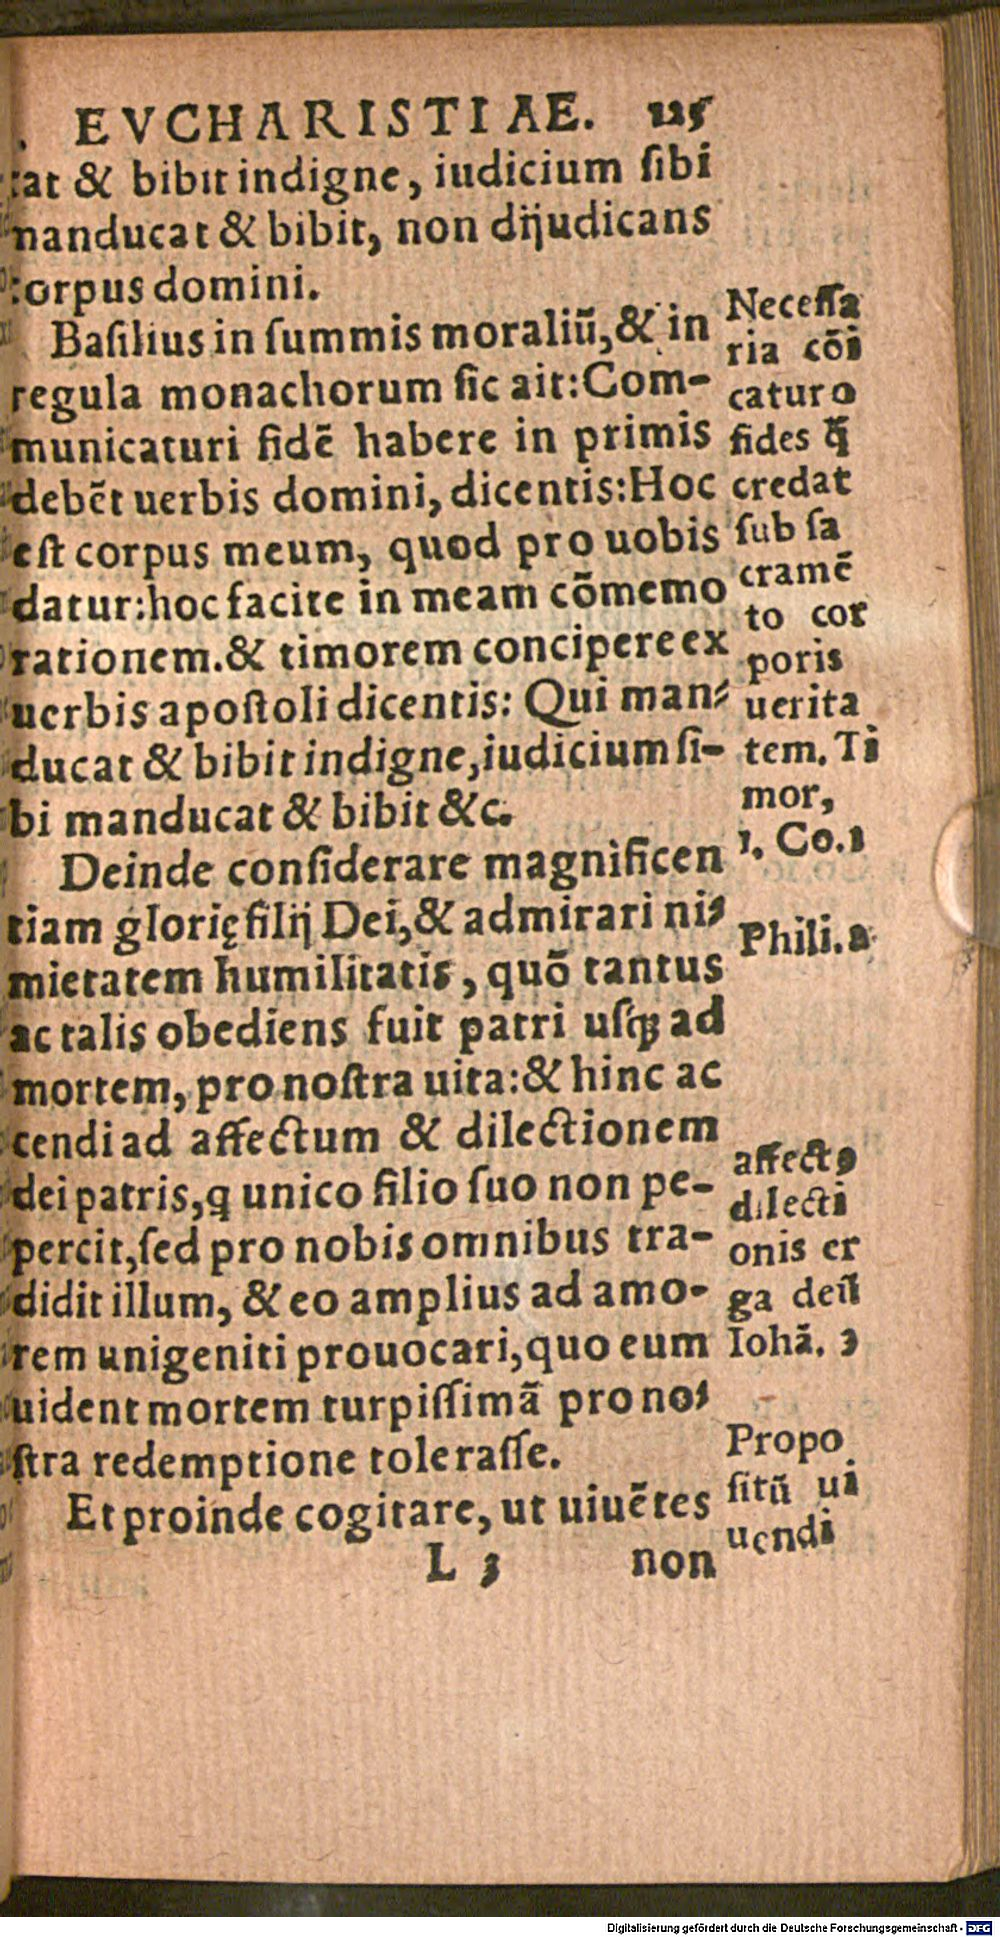 EVCHARISTIAE. 125
cat & bibit indigne, iudicium ſibi
manducat & bibit, non dĳudicans
corpus domini.
Baſilius in ſummis moraliũ,& in
regula monachorum ſic ait:Com-
municaturi fidẽ habere in primis
debẽt uerbis domini, dicentis:Hoc
eſt corpus meum, quod pro uobis
datur:hoc facite in meam cõmemo
rationem.& timorem concipere ex
uerbis apoſtoli dicentis: Qui man-
ducat & bibit indigne,iudicium ſi-
bi manducat & bibit &c.
Deinde conſiderare magnificen
tiam glorię filĳ Dei,& admirari ni-
mietatem humilitatis, quõ tantus
ac talis obediens fuit patri uſq; ad
mortem, pro noſtra uita:& hinc ac
cendi ad affectum & dilectionem
dei patris,ꝗ unico filio ſuo non pe-
percit,ſed pro nobis omnibus tra-
didit illum, & eo amplius ad amo-
rem unigeniti prouocari,quo eum
uident mortem turpiſſimã pro no-
ſtra redemptione toleraſſe.
Et proinde cogitare, ut uiuẽtes
L 3 non
Neceſſa
ria cõi
caturo
fides ꝗ̃
credat
ſub ſa
cramẽ
to cor
poris
uerita
tem. Ti
mor,
1. Co.1
Phili.2
affectꝰ
dilecti
onis er
ga deũ
Iohã. 3
Propo
ſitũ ui
uendi
Digitalisierung gefördert durch die Deutsche Forschungsgemeinschaft - DFG